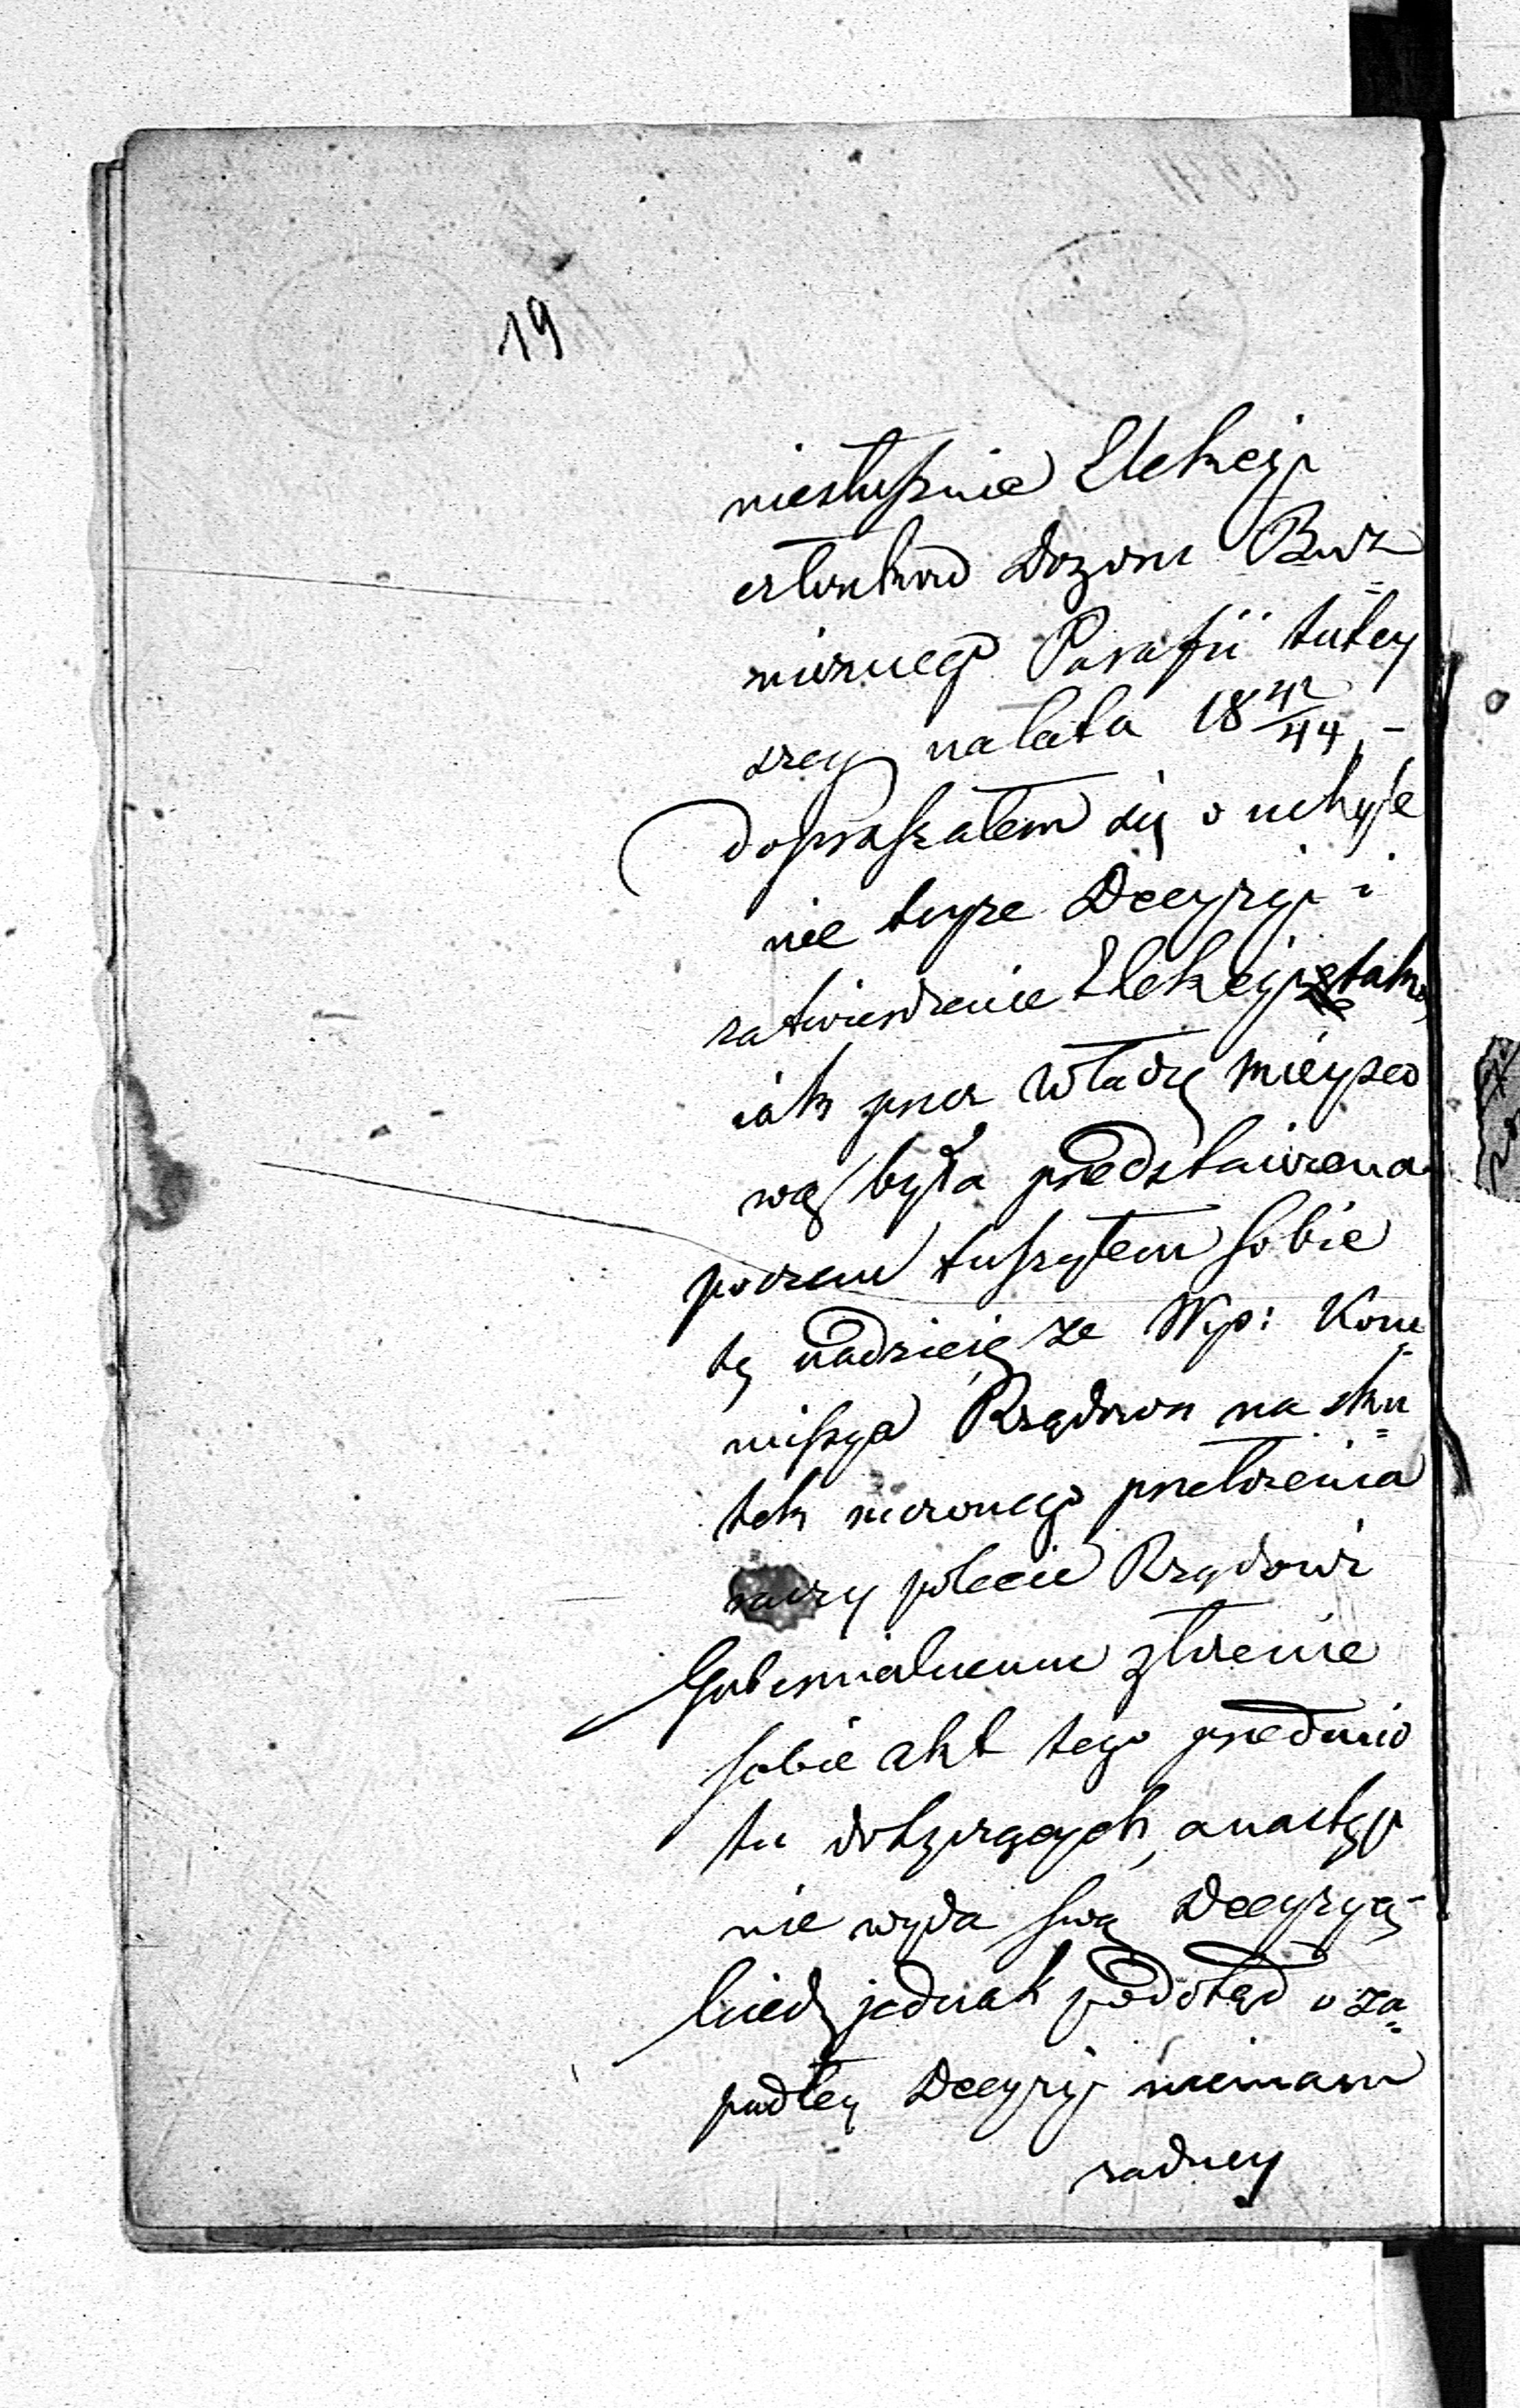 19
niesłusznie Elekcji
członków Dozoru Buż=
niczego Parafii tutey
szey na lata 18 42/44, -
dopraszałem się o uchyle
nie teyże Decyzji i
zatwierdzenie Elekcji tak,
jak przez władzę mieysco
wą była przedstawiona
poczem tuszyłem sobie
tę nadzieię że Wys: Kom=
missya Rządowa na sku=
tek mionego przełożenia
raczy polecić Rządowi
Gubernialnemu złożenie
sobie akt tego przedmio
tu dotyczących, a następ
nie wyda swą Decyzyą -
kiedy jednak podotąd o za=
padłey Decyzji niemam
żadney